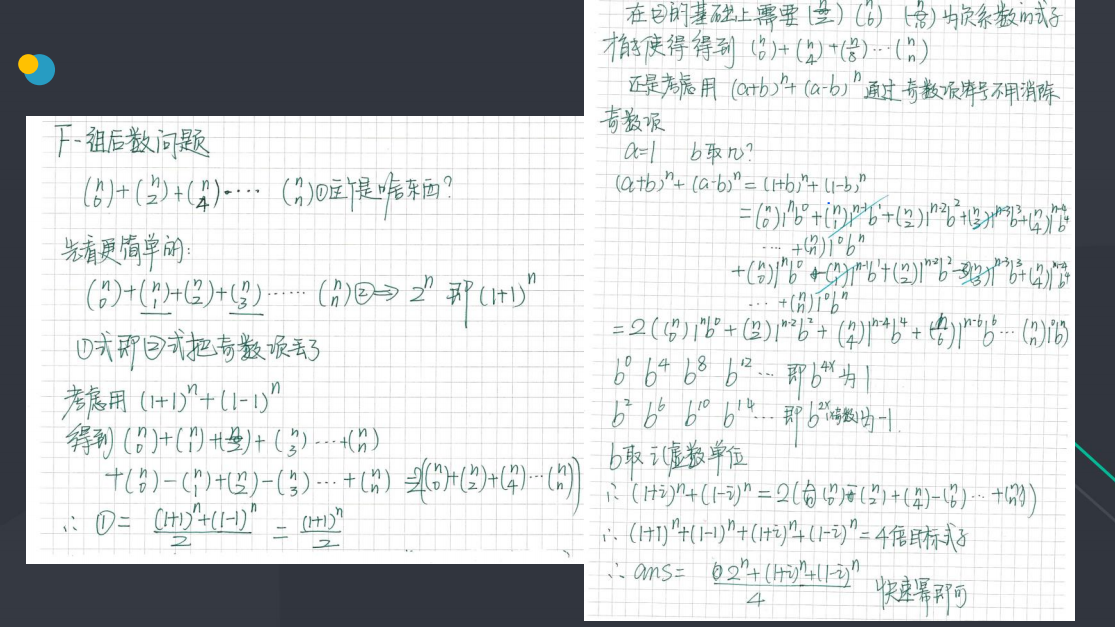 下-组合数问题
(n 0)+(n 2)+(n 4)+···· (n n)①这个是啥东西?
先看更简单的:
(n 0)+(n 1)+(n 2)+(n 3)······ (n n)②⟹ 2^n 即(1+1)^n
①式即②式把奇数项丢了
考虑用 (1+1)^n+(1-1)^n
得到 (n 0)+(n 1)+(n 2)+(n 3)···+(n n)
+(n 0)-(n 1)+(n 2)-(n 3)···+(n n) =2((n 0)+(n 2)+(n 4)···(n n))
∴ ①= ((1+1)^n+(1-1)^n)/2 = (1+1)^n/2
在②的基础上需要 (n 2) (n 6) 为负系数的式子
才能使得得到 (n 0)+(n 4)+(n 8)···(n n)
还是考虑用 (a+b)^n+(a-b)^n 通过奇数项异号不用消除
奇数项
a=1 b取几?
(a+b)^n+(a-b)^n=(1+b)^n+(1-b)^n
=(n 0)1^n b^0+(n 1)1^n-1 b^1+(n 2)1^n-2 b^2+(n 3)1^n-3 b^3+(n 4)1^n-4 b^4
··· +(n n)1^0 b^n
+(n 0)1^n b^0-(n 1)1^n-1 b^1+(n 2)1^n-2 b^2-(n 3)1^n-3 b^3+(n 4)1^n-4 b^4
··· +(n n)1^0 b^n
=2((n 0)1^n b^0+(n 2)1^n-2 b^2+(n 4)1^n-4 b^4+(n 6)1^n-6 b^6···(n n)1^0 b^n)
b^0 b^4 b^8 b^12 ··· 即b^4x为1
b^2 b^6 b^10 b^14 ··· 即b^2x(奇数)为-1
b取i(虚数单位)
∴ (1+i)^n+(1-i)^n=2((n 0)-(n 2)+(n 4)-(n 6)···+(n n))
∴ (1+1)^n+(1-1)^n+(1+i)^n+(1-i)^n=4倍目标式子
∴ ans= (2^n+(1+i)^n+(1-i)^n)/4 快速幂即可